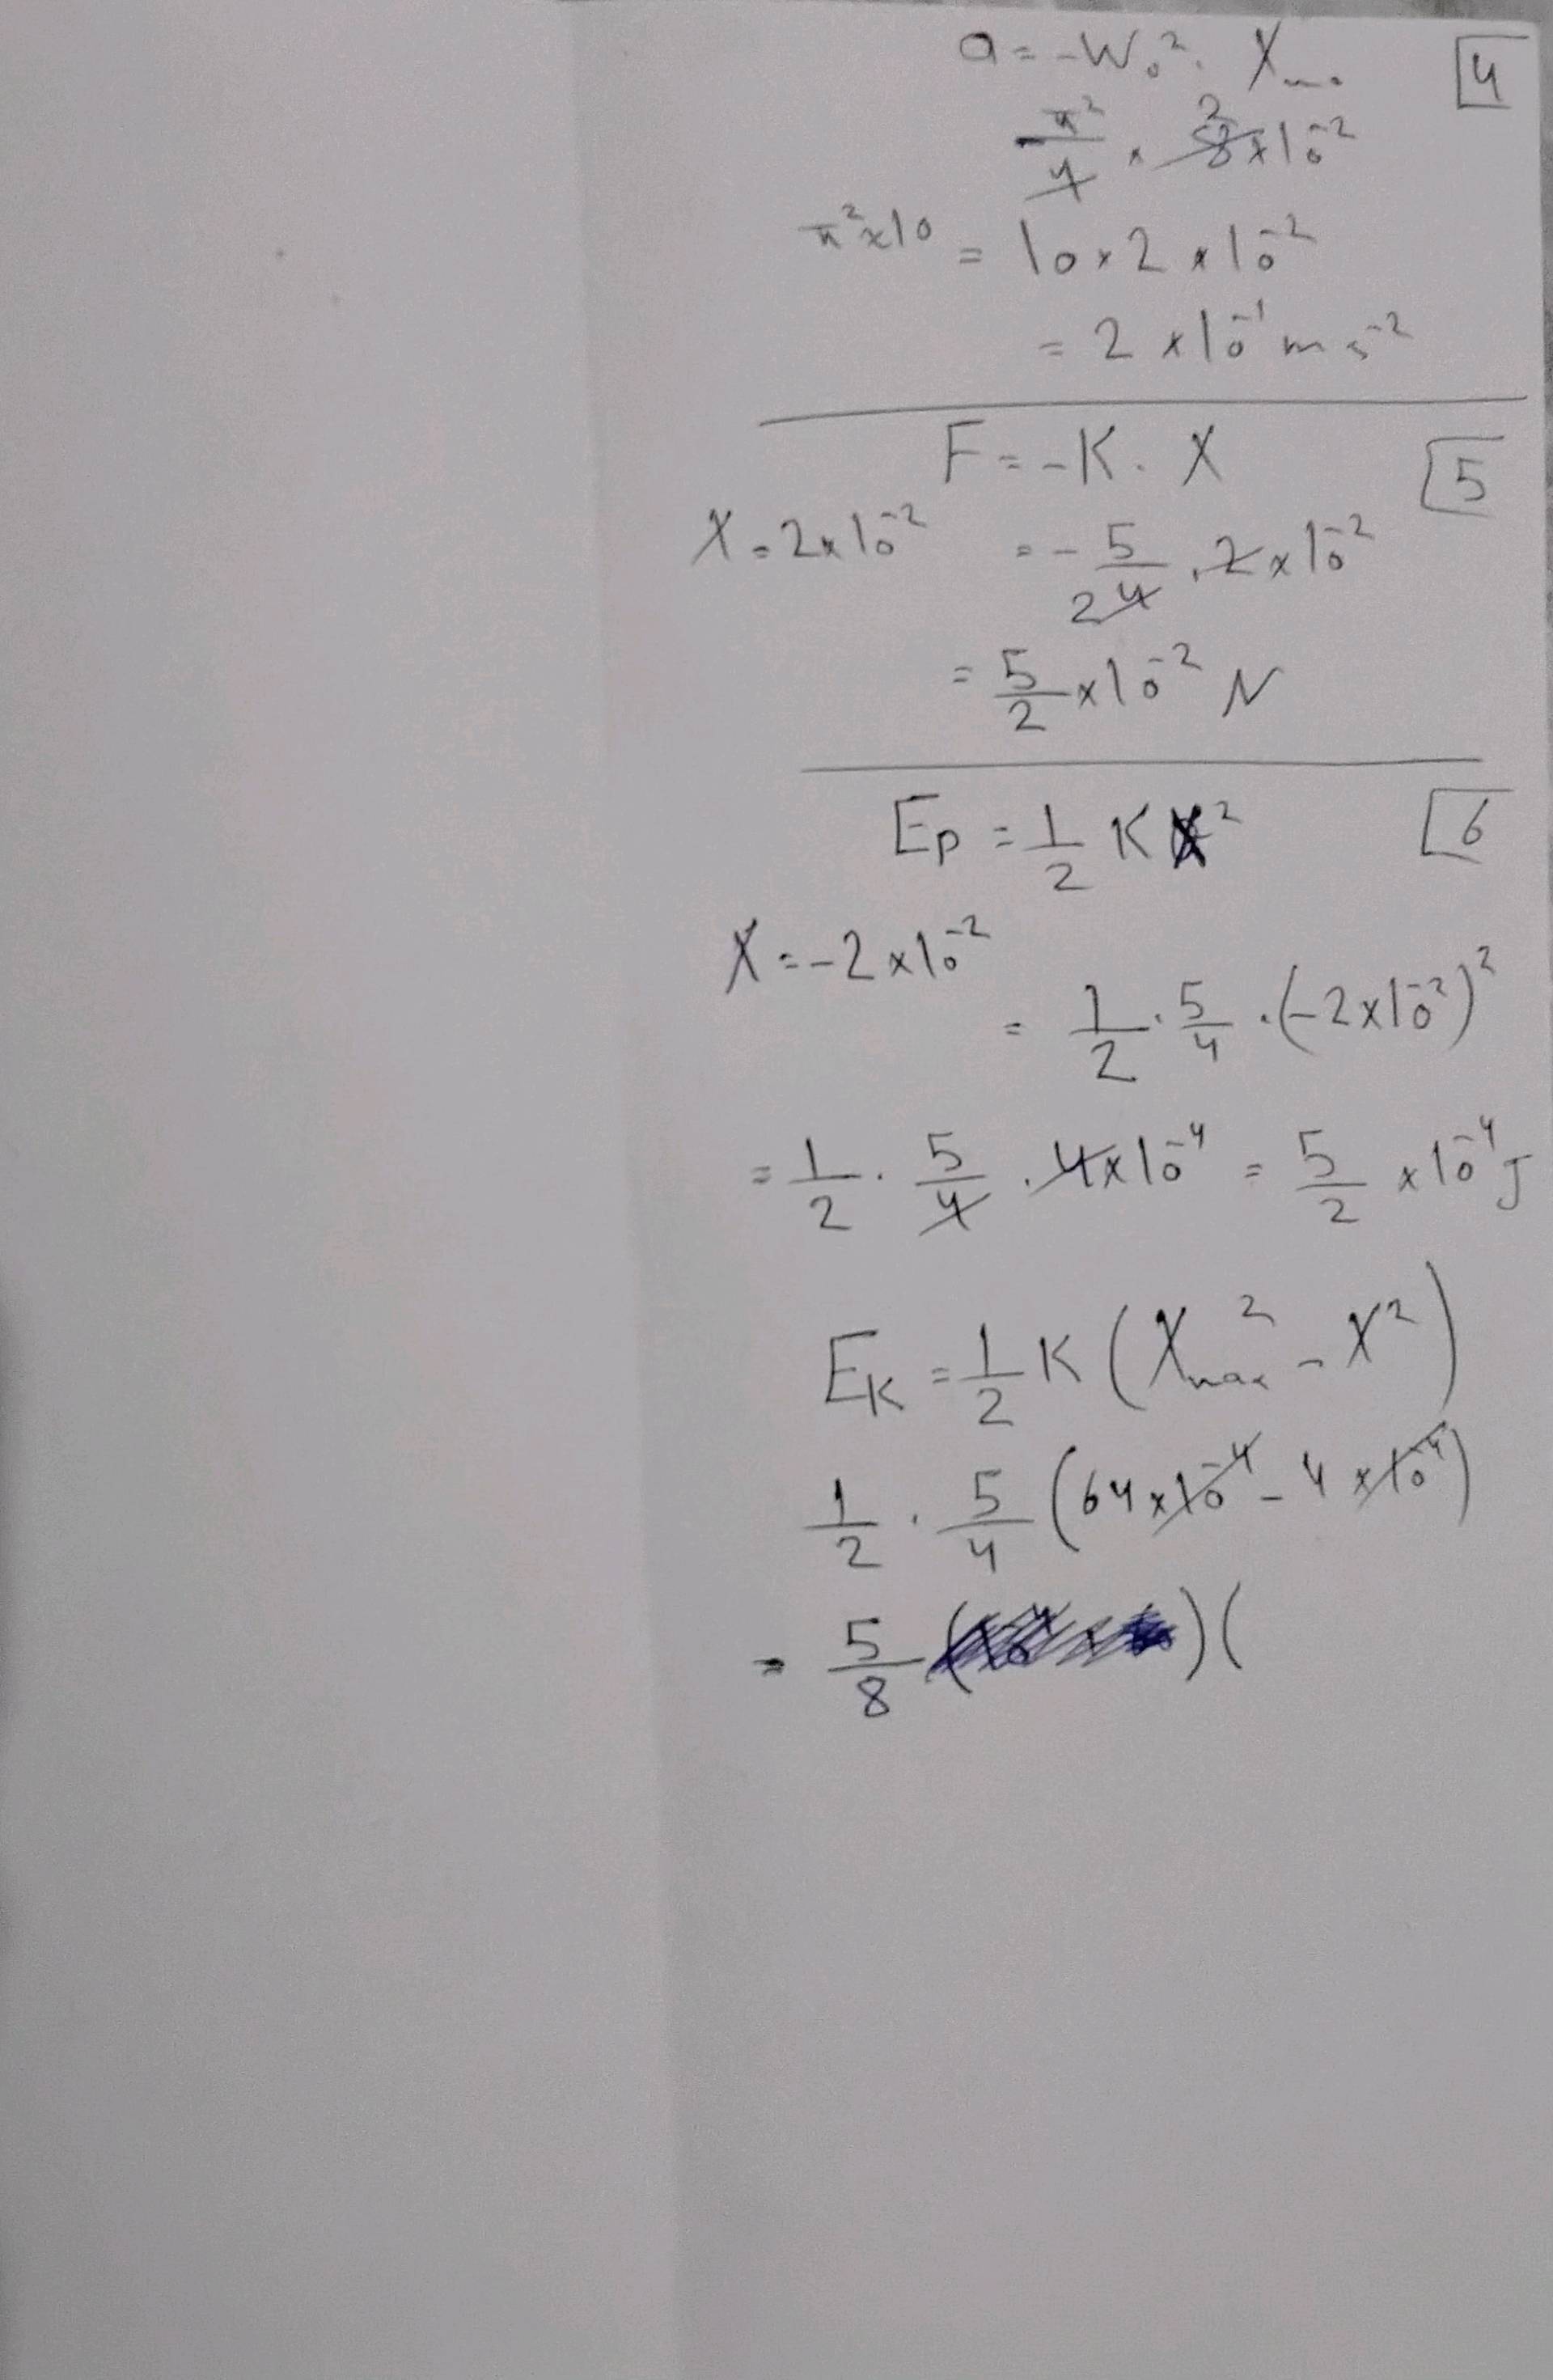 a = -W₀² . Xₘ.
4
-π²/4 × 8×10⁻² 2
π²≈10 = 10×2×10⁻²
= 2×10⁻¹ m s⁻²
F = -K . X
5
X = 2×10⁻² = - 5/4 . 2×10⁻²
2
= 5/2 ×10⁻² N
Ep = 1/2 K X²
6
X = -2×10⁻²
= 1/2 . 5/4 . (-2×10⁻²)²
= 1/2 . 5/4 . 4×10⁻⁴ = 5/2 ×10⁻⁴ J
EK = 1/2 K (Xmax² - X²)
1/2 . 5/4 (64×10⁻⁴ - 4×10⁻⁴)
= 5/8 ( ) (